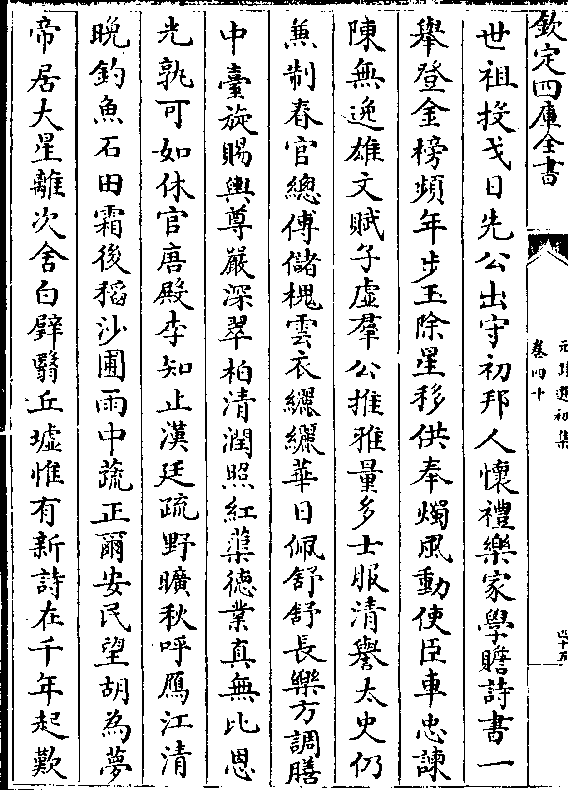 欽定四庫全書
元詩選初集
卷四十
四十五
世祖投戈日先公出守初邦人懷禮樂家學贍詩書一
舉登金榜頻年步玉除星移供奉燭風動使臣車忠諫
陳無逸雄文賦子虛羣公推雅量多士服清譽太史仍
兼制春官總傅儲槐雲衣纚纚華日佩舒舒長樂方調膳
中臺旋賜輿尊嚴深翠柏清潤照紅蕖徳業真無比恩
光孰可如休官唐殿李知止漢廷疏野曠秋呼鴈江清
晩釣魚石田霜後稻沙圃雨中蔬正爾安民望胡為夢
帝居大星離次舍白壁翳丘墟惟有新詩在千年起歎